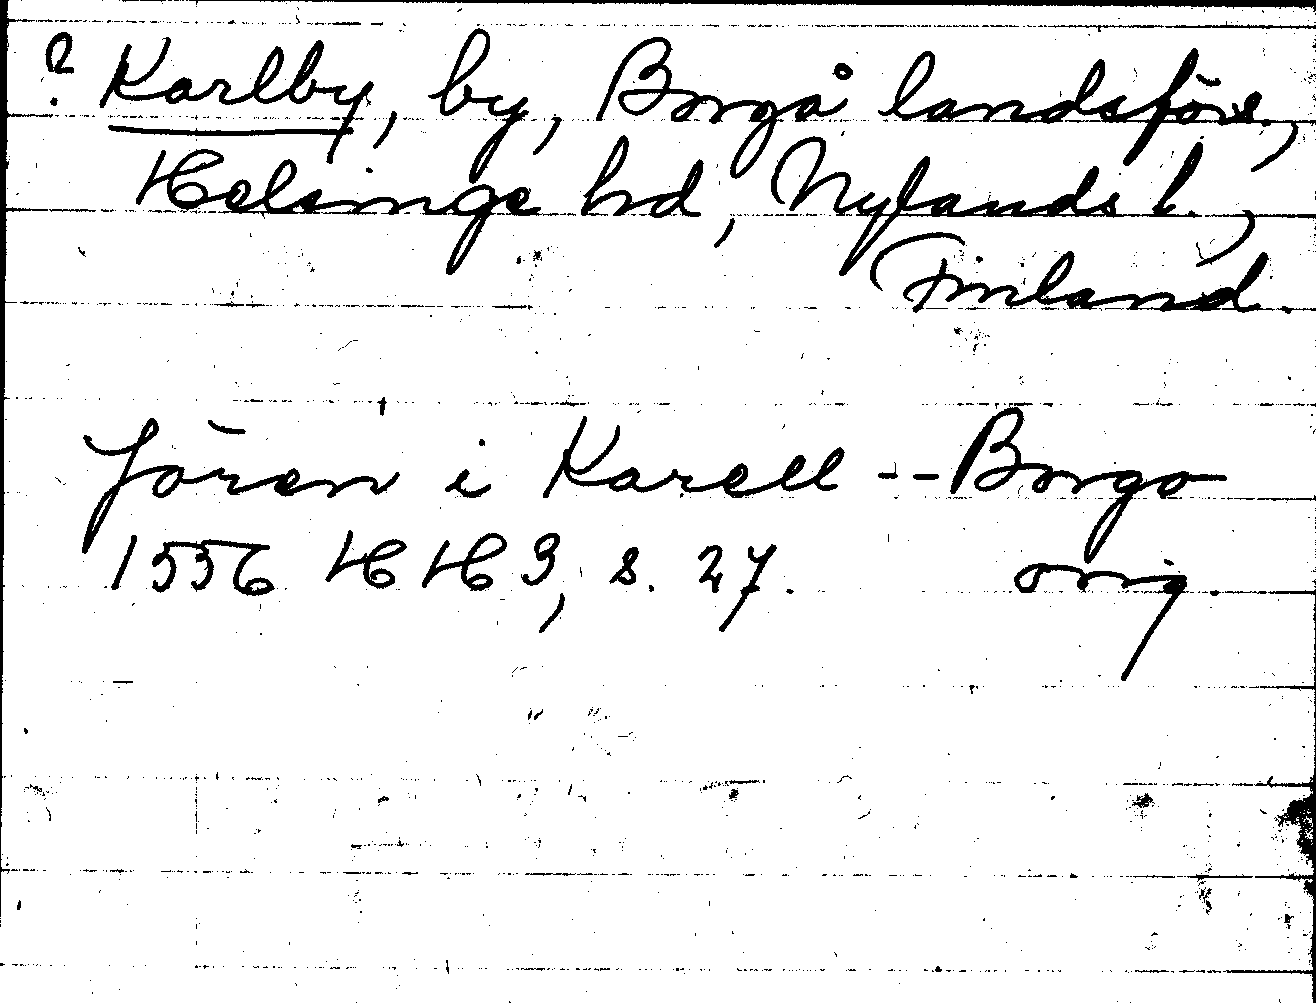 ? Karlby, by, Borgå landsförs.,
Helsinge hd, Nylands l.,
Finland.
Jören i Karell -- Borgo
1556 HH 3, s. 27. orig.